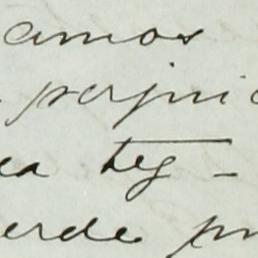 amos
perjui
ea teg-
erde pr